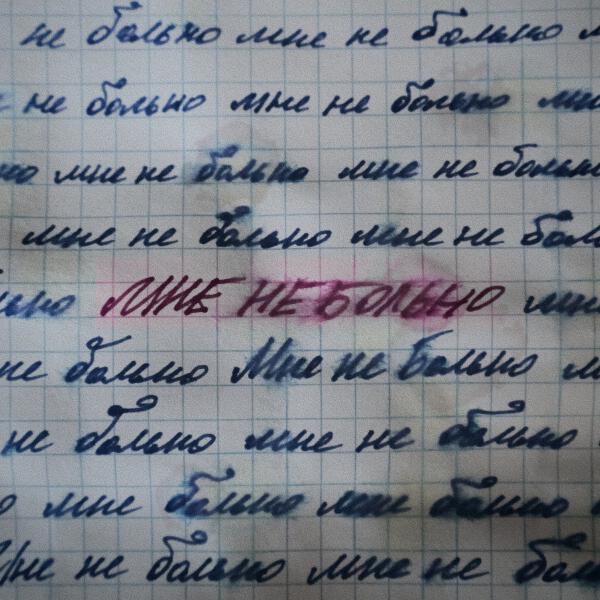 не больно мне не больно
не больно мне не больно мне
мне не больно мне не больно
мне не больно мне не
МНЕ НЕ БОЛЬНО мне
не больно Мне не больно
не больно мне не больно
мне больно мне больно
Мне не больно мне не